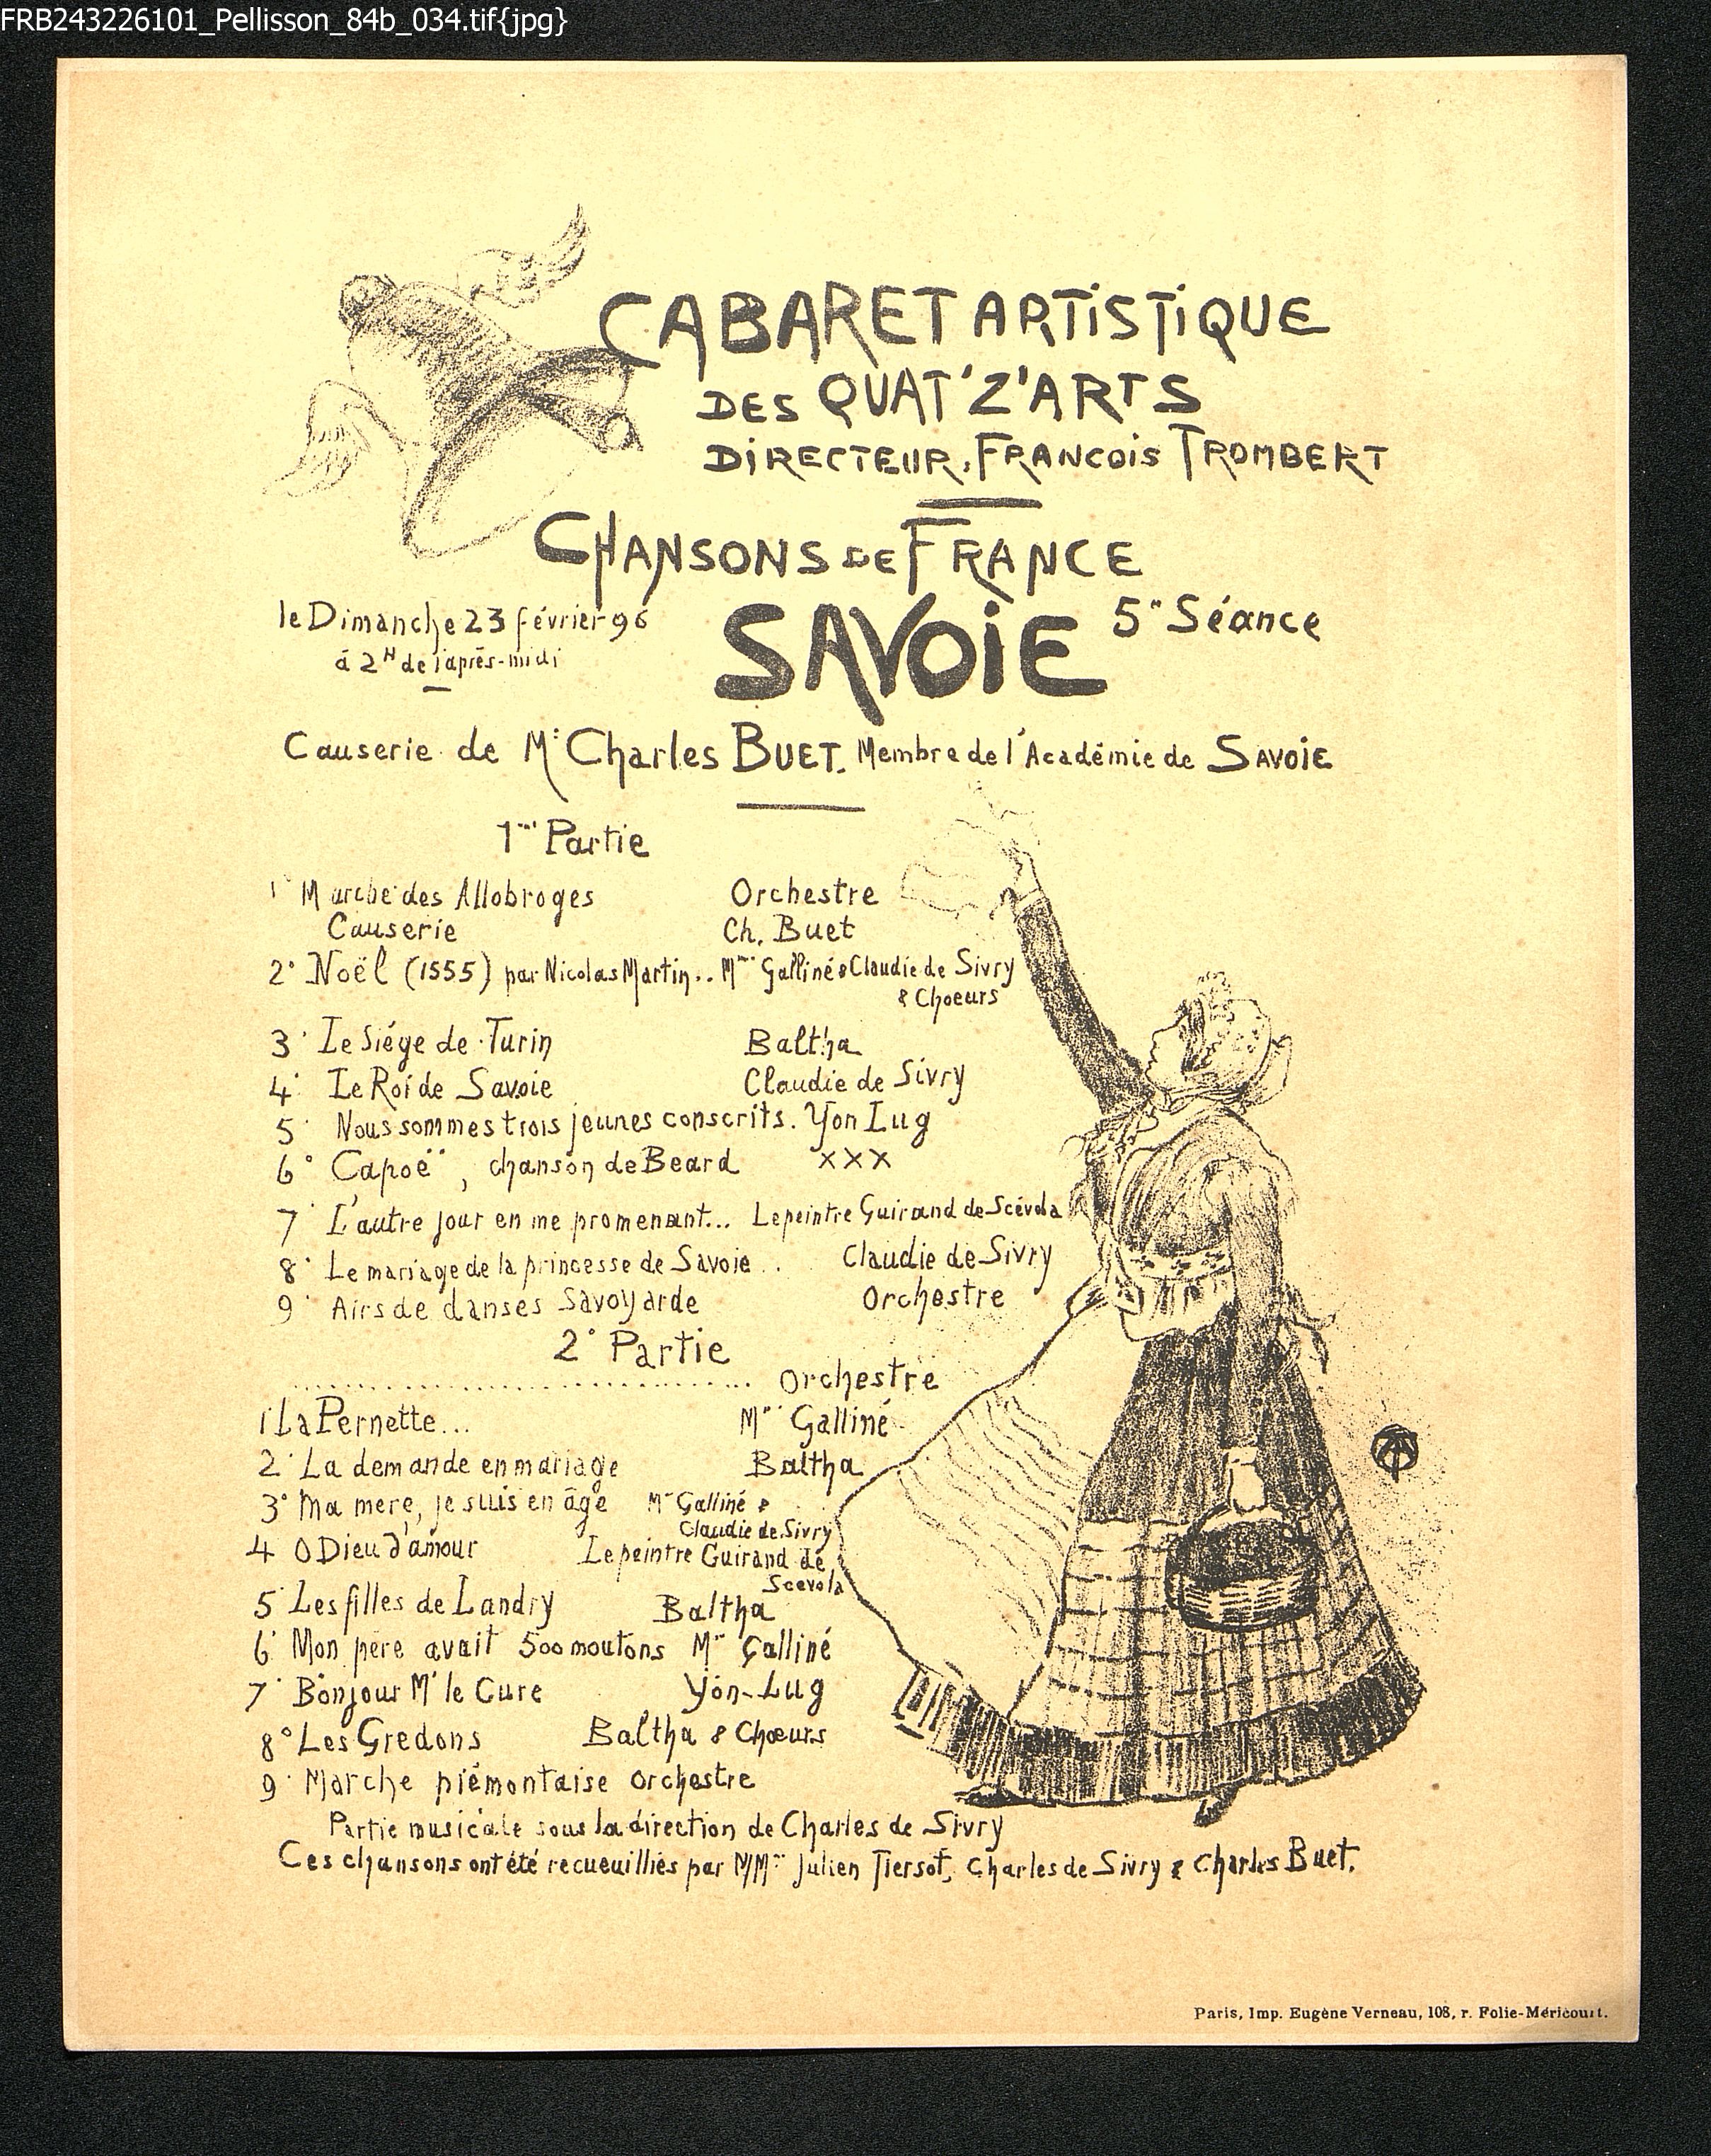 FRB243226101_Pellisson_84b_034.tif{jpg}
CABARET ARTISTIQUE
DES QUAT'Z'ARTS
DIRECTEUR. FRANCOIS TROMBERT
CHANSONS DE FRANCE
le Dimanche 23 février 96
à 2H de l'après-midi
SAVOIE 5e Séance
Causerie de Mr Charles BUET. Membre de l'Académie de SAVOIE
1ère Partie
1° Marche des Allobroges Orchestre
Causerie Ch. Buet
2° Noël (1555) par Nicolas Martin.. Mme Galliné & Claudie de Sivry
& Choeurs
3° Le Siége de Turin Baltha
4° Le Roi de Savoie Claudie de Sivry
5° Nous sommes trois jeunes conscrits. Yon Lug
6° Capoë, chanson de Beard XXX
7° L'autre jour en me promenant... Le peintre Guirand de Scévola
8° Le mariage de la princesse de Savoie.. Claudie de Sivry
9° Airs de danses Savoyarde Orchestre
2° Partie
.............................. Orchestre
1 La Pernette... Mme Galliné
2° La demande en mariage Baltha
3° Ma mere, je suis en âge Me Galliné &
Claudie de Sivry
4 O Dieu d'amour Le peintre Guirand de
Scevola
5° Les filles de Landry Baltha
6° Mon père avait 500 moutons Mme Galliné
7° Bonjour Mr le Cure Yon-Lug
8° Les Gredons Baltha & Chœurs
9° Marche piémontaise Orchestre
Partie musicale sous la direction de Charles de Sivry
Ces chansons ont été recueuilliés par MMrs Julien Tiersot, Charles de Sivry & Charles Buet.
Paris, Imp. Eugène Verneau, 108, r. Folie-Méricourt.